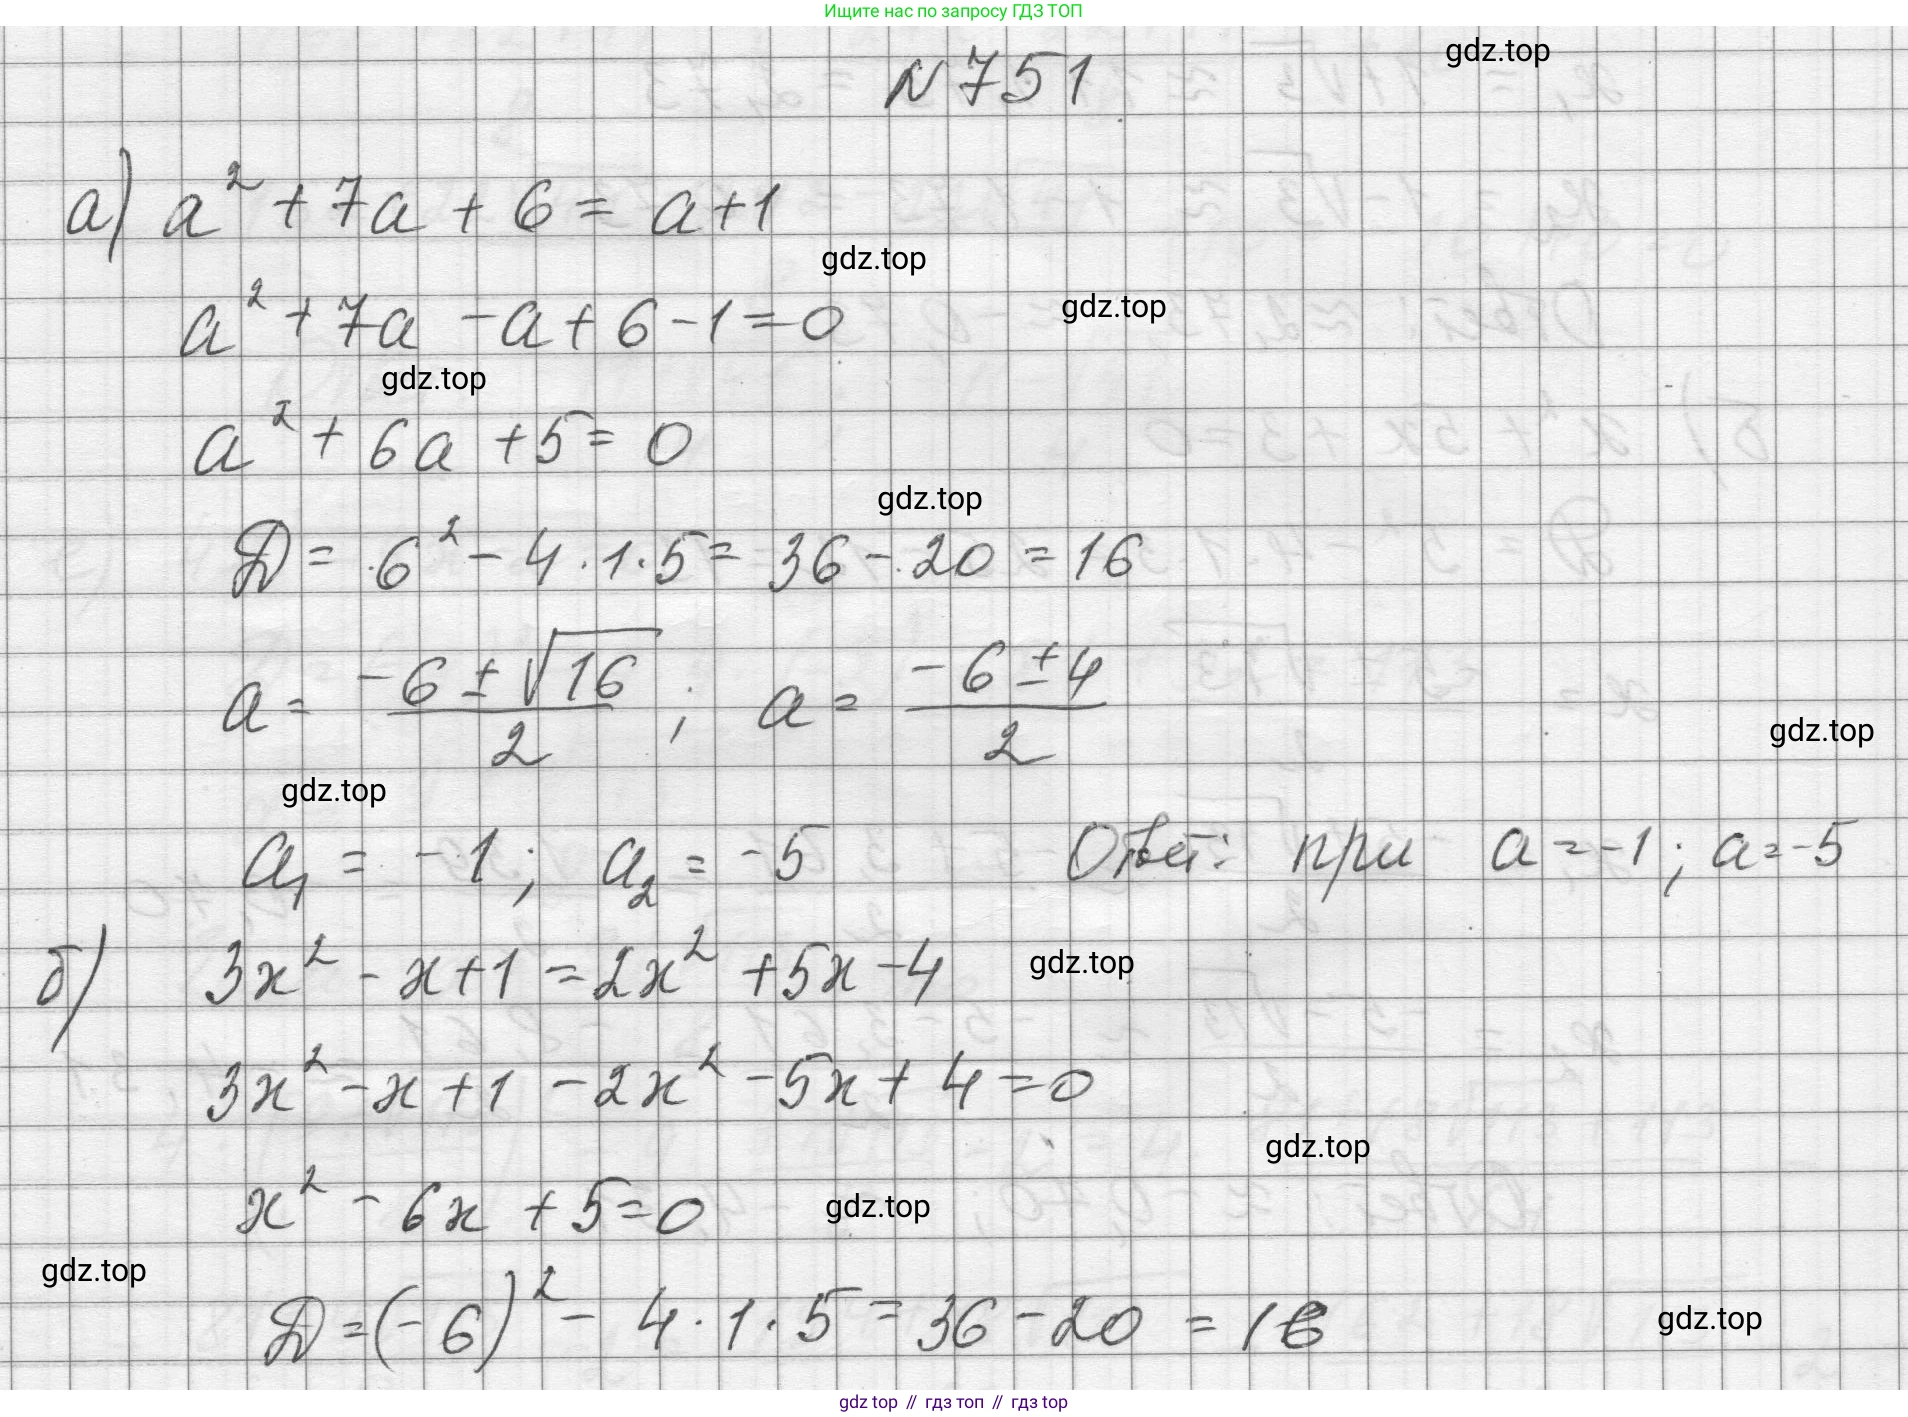 Ищите нас по запросу ГДЗ ТОП
gdz.top
N 751
а) a² + 7a + 6 = a + 1
gdz.top
a² + 7a - a + 6 - 1 = 0
gdz.top
gdz.top
a² + 6a + 5 = 0
gdz.top
Д = 6² - 4 · 1 · 5 = 36 - 20 = 16
a = (-6 ± √16)/2 ; a = (-6 ± 4)/2
gdz.top
gdz.top
a₁ = -1; a₂ = -5 Ответ: при a = -1; a = -5
б) 3x² - x + 1 = 2x² + 5x - 4
gdz.top
3x² - x + 1 - 2x² - 5x + 4 = 0
gdz.top
x² - 6x + 5 = 0
gdz.top
gdz.top
Д = (-6)² - 4 · 1 · 5 = 36 - 20 = 16
gdz.top
gdz top // гдз топ // гдз top